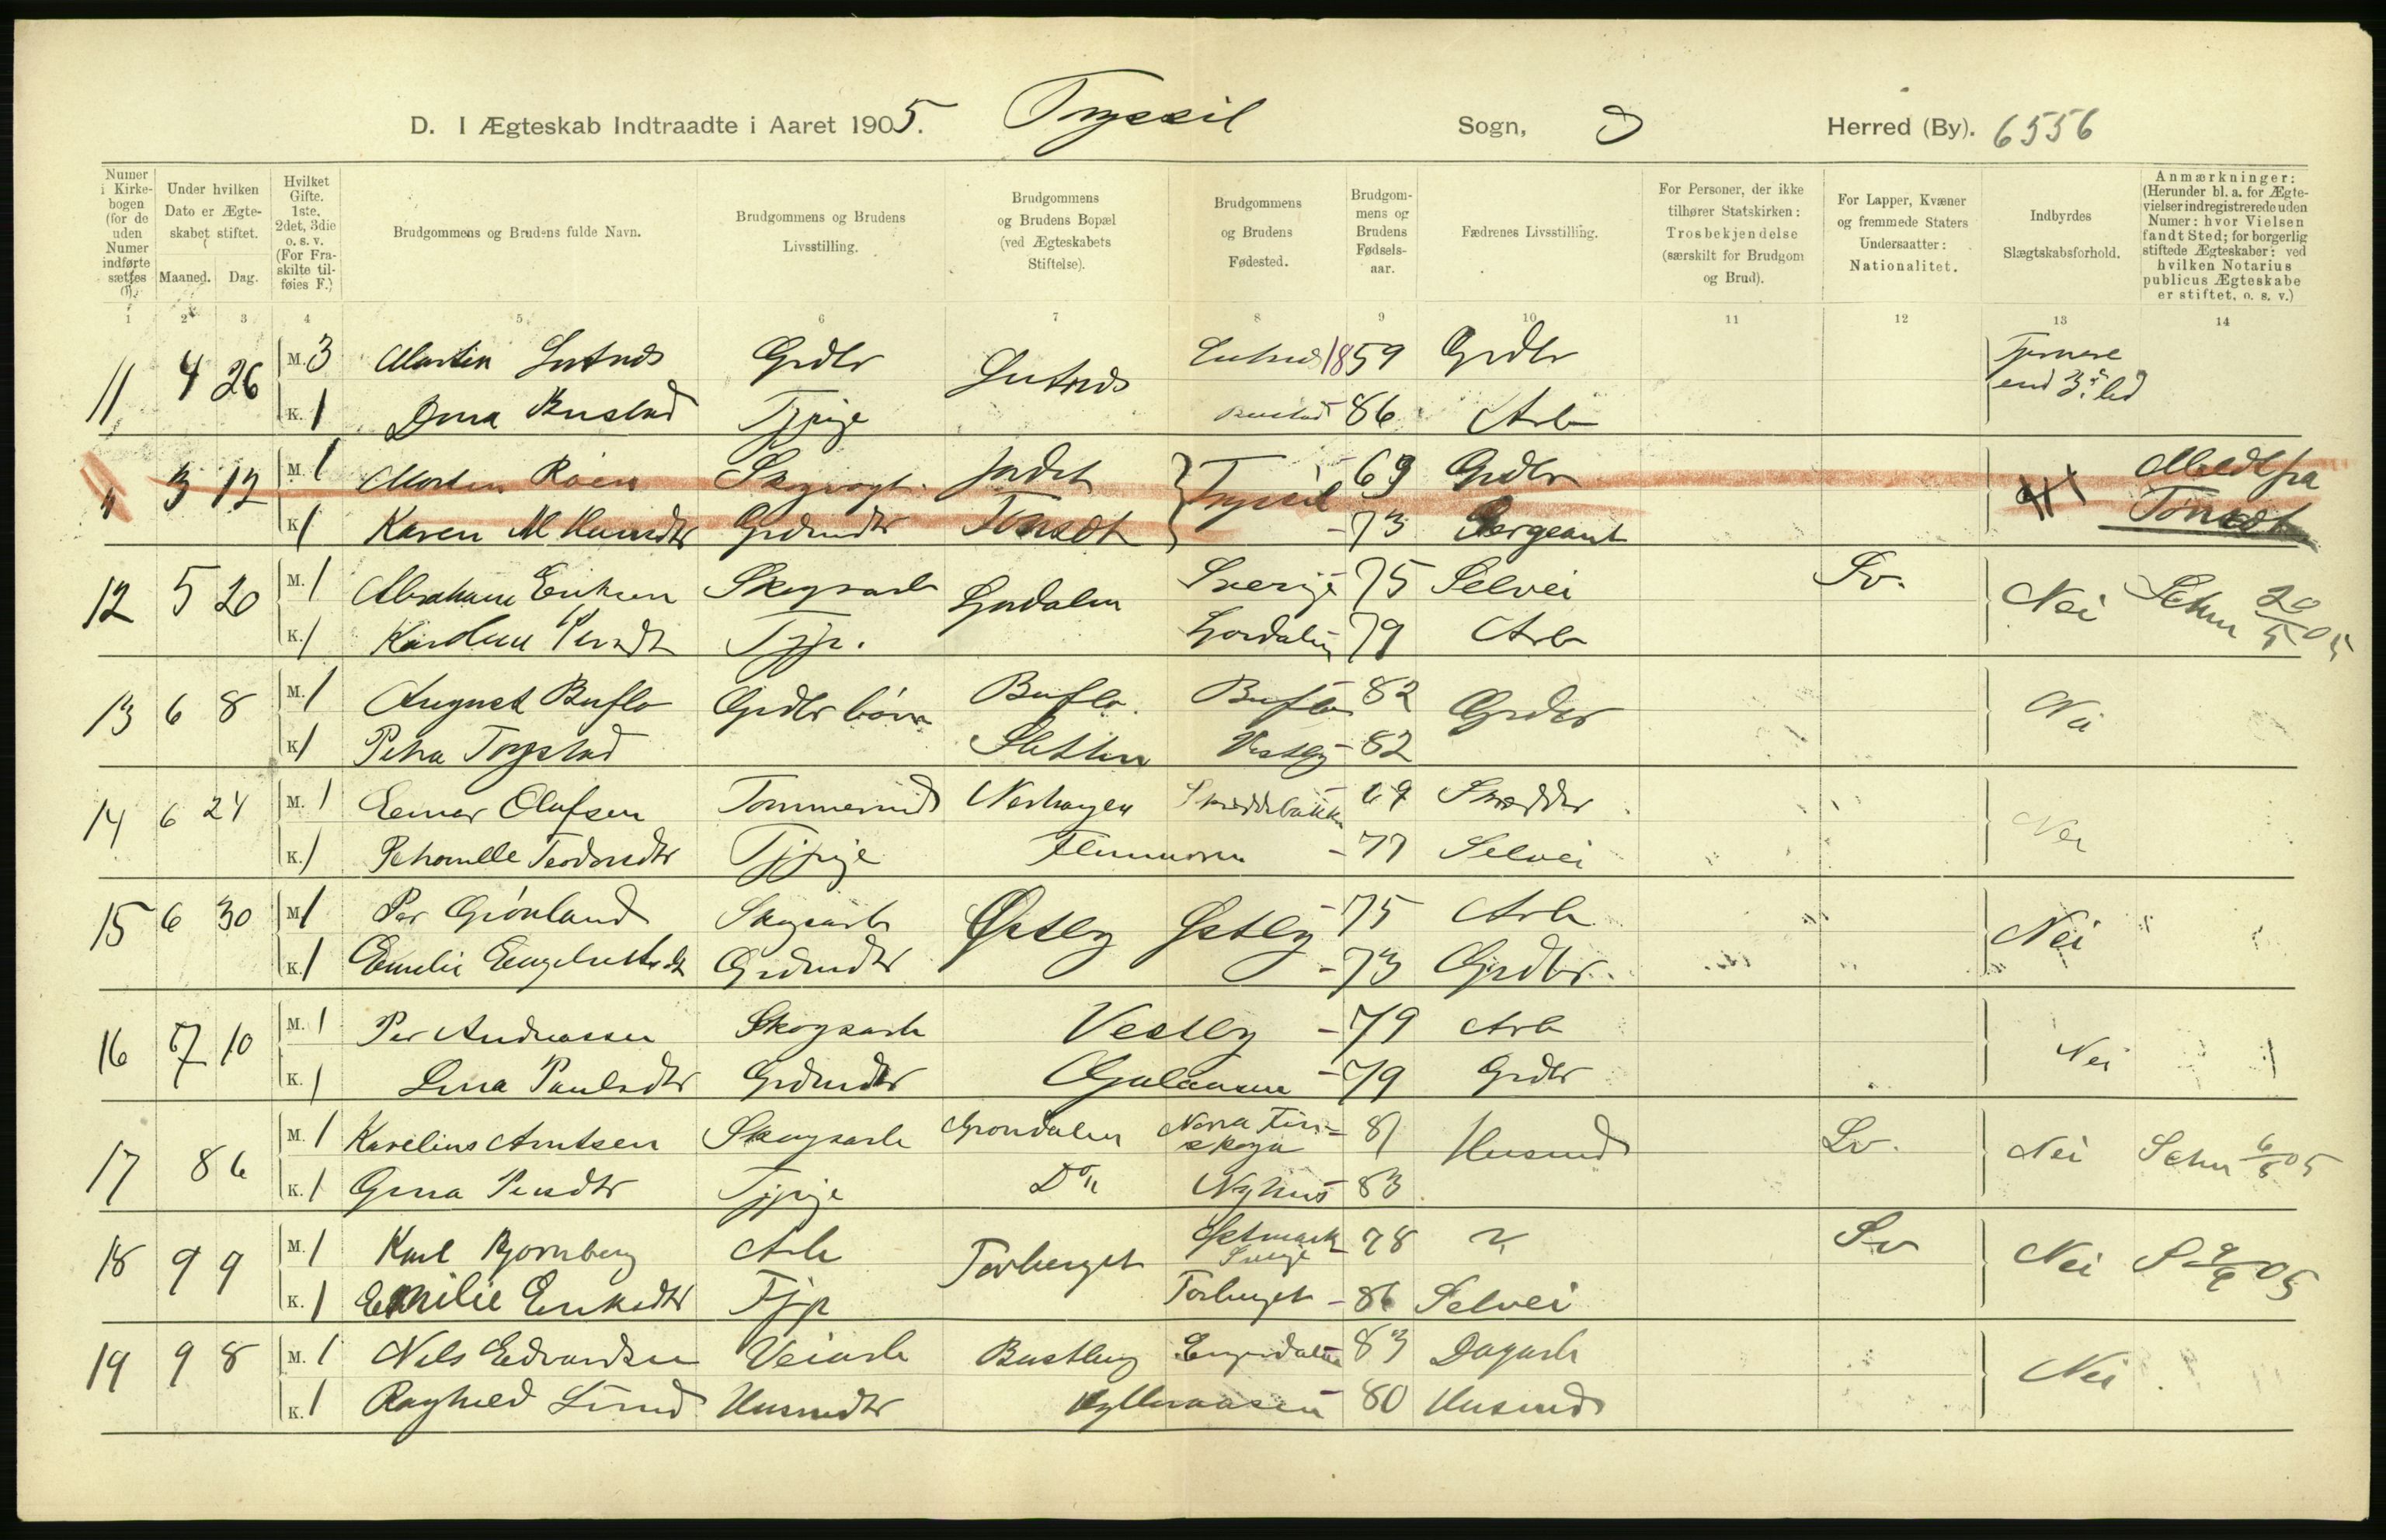 D. I Ægteskab Indtraadte i Aaret 1905. Trysil Sogn, Herred (By). 6556
Numer i Kirkebogen (for de uden Numer indførte sættes 0).
Under hvilken Dato er Ægteskabet stiftet.
Maaned. Dag.
Hvilket Gifte. 1ste, 2det, 3die o. s. v. (For Fraskilte tilføies F.)
Brudgommens og Brudens fulde Navn.
Brudgommens og Brudens Livsstilling.
Brudgommens og Brudens Bopæl (ved Ægteskabets Stiftelse).
Brudgommens og Brudens Fødested.
Brudgommens og Brudens Fødselsaar.
Fædrenes Livsstilling.
For Personer, der ikke tilhører Statskirken: Trosbekjendelse (særskilt for Brudgom og Brud).
For Lapper, Kvæner og fremmede Staters Undersaatter: Nationalitet.
Indbyrdes Slægtskabsforhold.
Anmærkninger: (Herunder bl. a. for Ægtevielser indregistrerede uden Numer: hvor Vielsen fandt Sted; for borgerlig stiftede Ægteskaber: ved hvilken Notarius publicus Ægteskabe er stiftet, o. s. v.)
1 2 3 4 5 6 7 8 9 10 11 12 13 14
11 4 26 M. 3 Martin Lutnes Grdbr Lutnes Lutnes 1859 Grdbr
K. 1 Dina Bustad Tjpige Bustad 86 Arb
end 3. led
" 3 12 M. 1 Morten Røen Skogvogt Jordet } Trysil 69 Grdbr Meldt fra
K. 1 Karen M Grdmdtr Tønset 73 Sergeant Tønset
12 5 20 M. 1 Abraham Eriksen Skogsarb Ljordalen Sverige 75 Selvei Sv. Nei 20/5 05
K. 1 Tjp. Ljordalen 79 Arb
13 6 8 M. 1 August Buflo Grdbr børn Buflo Buflo 82 Grdbr Nei
K. 1 Petra Trystad Sletten Vestby - 82
14 6 24 M. 1 Einar Olufsen Tømmermd Nerhagen Skrædderbakken 69 Skrædder Nei
K. 1 Petronille Teodorsdtr Tjpige Flermoen - 77 Selvei
15 6 30 M. 1 Per Grønland Skogsarb Østby Østby - 75 Arb Nei
K. 1 Emelie Engebretsdt Grdmdtr - 73 Grdbr
16 7 10 M. 1 Per Andreassen Skogsarb Vestby - 79 Arb Nei
K. 1 Lina Paulsdtr Grdmdtr - 79 Grdbr
17 8 6 M. 1 Karelius Arntsen Skogsarb Grøndalen Norra Finskoga 81 Husmd Sv. Nei 6/8 05
K. 1 Gina Persdtr Tjpige Do Nyhus 83
18 9 9 M. 1 Karl Bjørnberg Arb Tørberget Østmark Sverige 78 ? Sv Nei S 9/9 05
K. 1 Emilie Eriksdtr Tjp Tørberget - 86 Selvei
19 9 8 M. 1 Nels Edvardsen Veiarb Engerdalen 83 Dagarb Nei
K. 1 Raghild Lund Husmdtr 80 Husmd